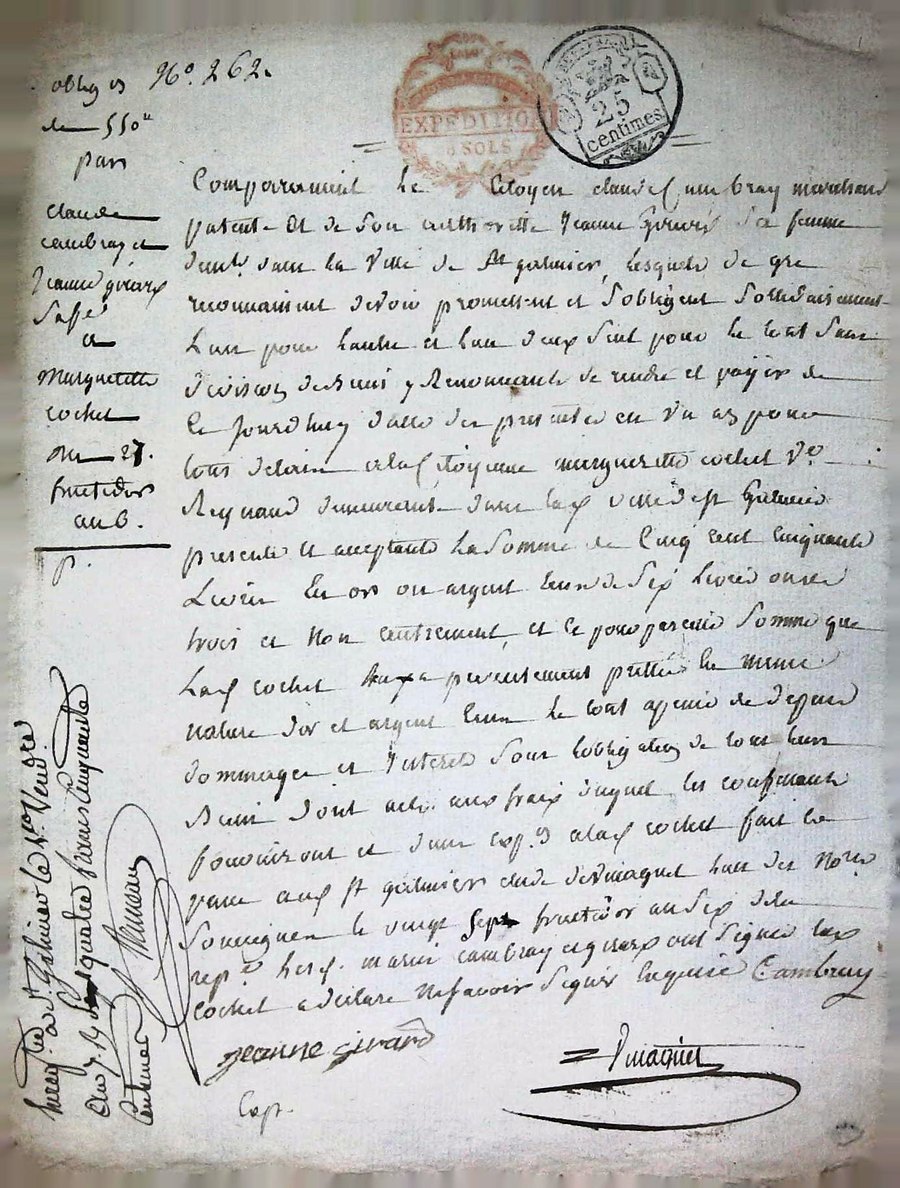 N.º 262.
oblig.on
de 550 #
par
claude
cambray et
jeanne girard
sa fe
a
Margueritte
cochet
Du 27.
fructidor
an 6.
p.
EXPEDITION
SOLS
25
centimes
Comparaissent le Citoyen claude Cambray marchand
patenté et de son authorité Jeanne Girard sa femme
demt. dans la ville de St galmier, lesquels de gré
reconnaissent devoir promettent et s'obligent solidairement
l'un pour l'autre et l'un deux seul pour le tout sans
division de biens y Renonçants de rendre et payer de
ce jourdhuy datte des presentes en un an pour
tous delais a la Citoyenne margueritte cochet Ve.
Reynaud demeurante dans lad. ville de st Galmier
presente et acceptante la somme de Cinq cent cinquante
Livres En or ou argent Ecus de Six Livres ou de
trois et Non autrement, et ce pour pareille somme que
lad. cochet leur a presentement prettée En meme
nature d'or et argent Ecus le tout a peine de depens
dommages et Interets sous lobligation de tous leurs
Biens dont acte aux frais duquel les confessants
fourniront et d'une exp.on a lad. cochet fait et
passé aud. St galmier etude de Dmagnet l'un des Notres
Soussignés le vingt Sept fructidor an Six de la
rep.e lesd. mariés cambray et girard ont signé lad.
cochet a déclaré ne savoir signer Enquise Cambray
jeanne girard
Dmagnet
Exp.
Enreg.tré a St Galmier le 1er Vendre
an 7. quatre francs cinquante
centimes